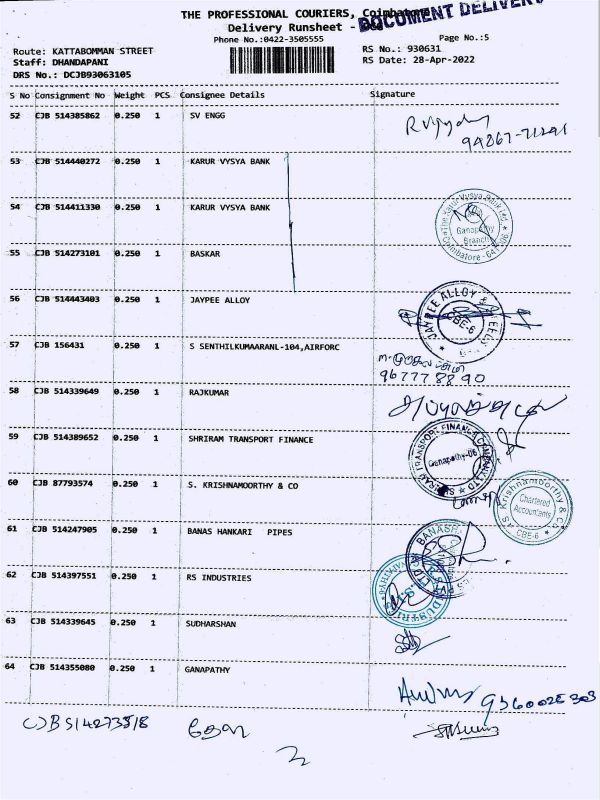 THE PROFESSIONAL COURIERS, Coimbatore
DOCUMENT DELIVERY
Delivery Runsheet -
Phone No.:0422-3505555
Page No.:5
Route: KATTABOMMAN STREET
RS No.: 930631
Staff: DHANDAPANI
RS Date: 28-Apr-2022
DRS No.: DCJB93063105
S No Consignment No Weight PCS Consignee Details Signature
52 CJB 514385862 0.250 1 SV ENGG
53 CJB 514440272 0.250 1 KARUR VYSYA BANK
54 CJB 514411330 0.250 1 KARUR VYSYA BANK
The Karur Vysya Bank Ltd.
Ganapathy
Branch
Coimbatore - 641 006
55 CJB 514273101 0.250 1 BASKAR
56 CJB 514443403 0.250 1 JAYPEE ALLOY
JAYPEE ALLOY &
CBE-6
57 CJB 156431 0.250 1 S SENTHILKUMAARANL-104,AIRFORC
96777 88 90
58 CJB 514339649 0.250 1 RAJKUMAR
59 CJB 514389652 0.250 1 SHRIRAM TRANSPORT FINANCE
SHRIRAM TRANSPORT FINANCE COMPANY LTD
Ganapathy-06
60 CJB 87793574 0.250 1 S. KRISHNAMOORTHY & CO
S. Krishnamoorthy & Co
Chartered
Accountants
CBE-6
61 CJB 514247905 0.250 1 BANAS HANKARI PIPES
62 CJB 514397551 0.250 1 RS INDUSTRIES
63 CJB 514339645 0.250 1 SUDHARSHAN
64 CJB 514355080 0.250 1 GANAPATHY